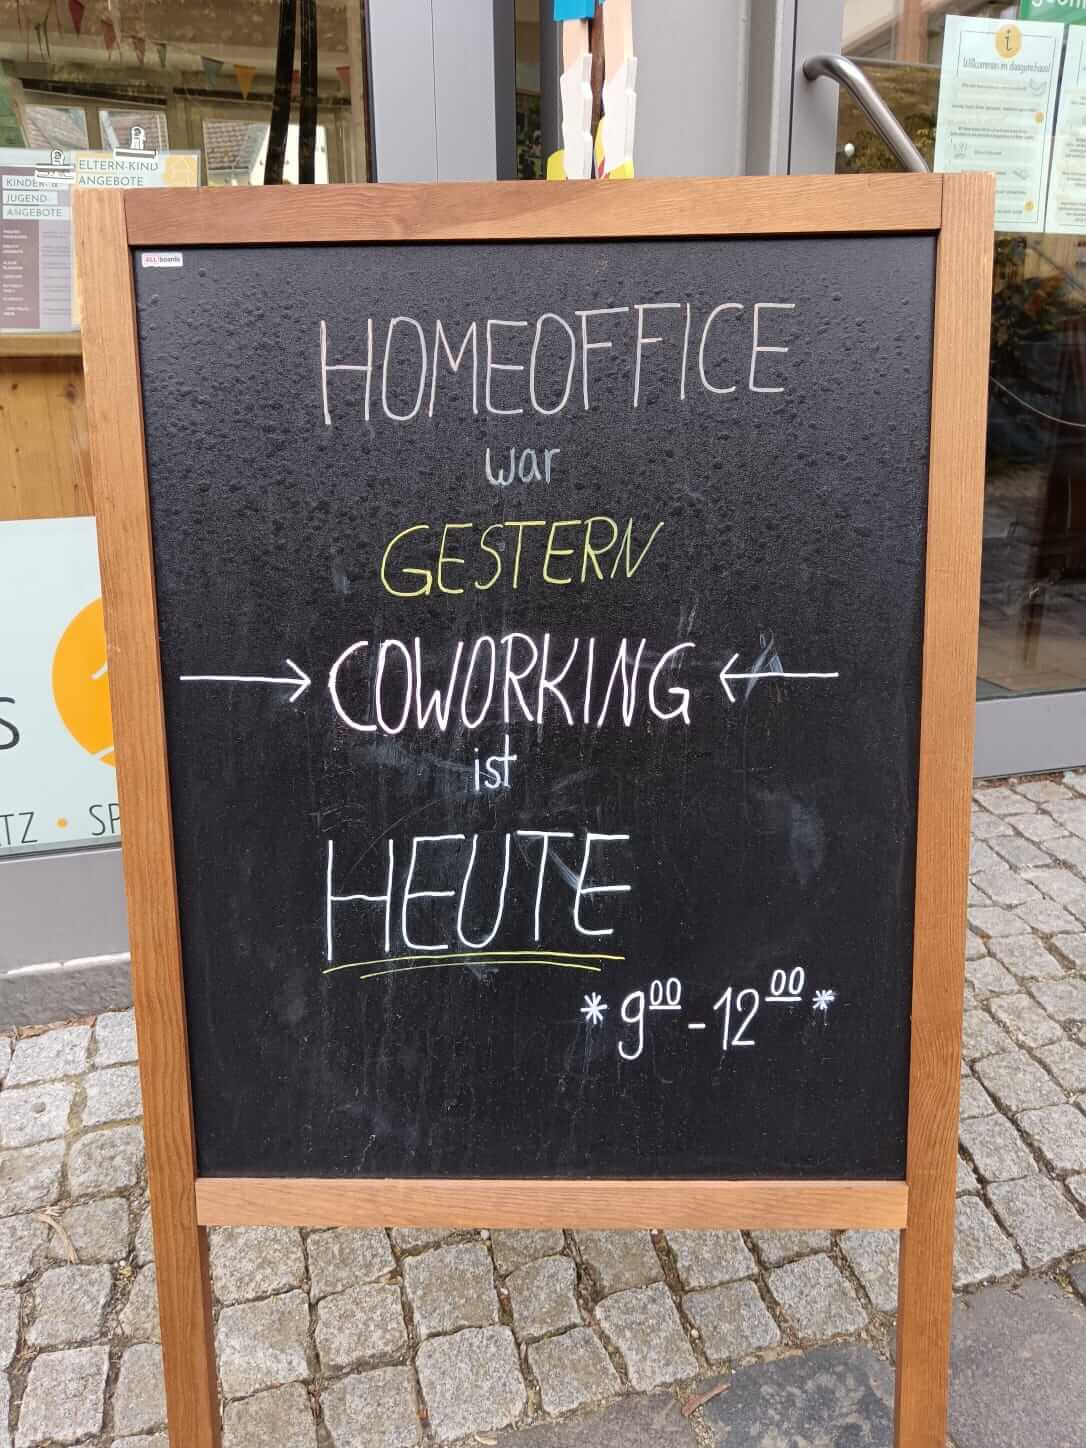 ELTERN-KIND
ANGEBOTE
KINDER- &
JUGEND-
ANGEBOTE
i
ALLboards
HOMEOFFICE
war
GESTERN
→ COWORKING ←
ist
HEUTE
* 9⁰⁰ - 12⁰⁰ *
S
TZ • SP